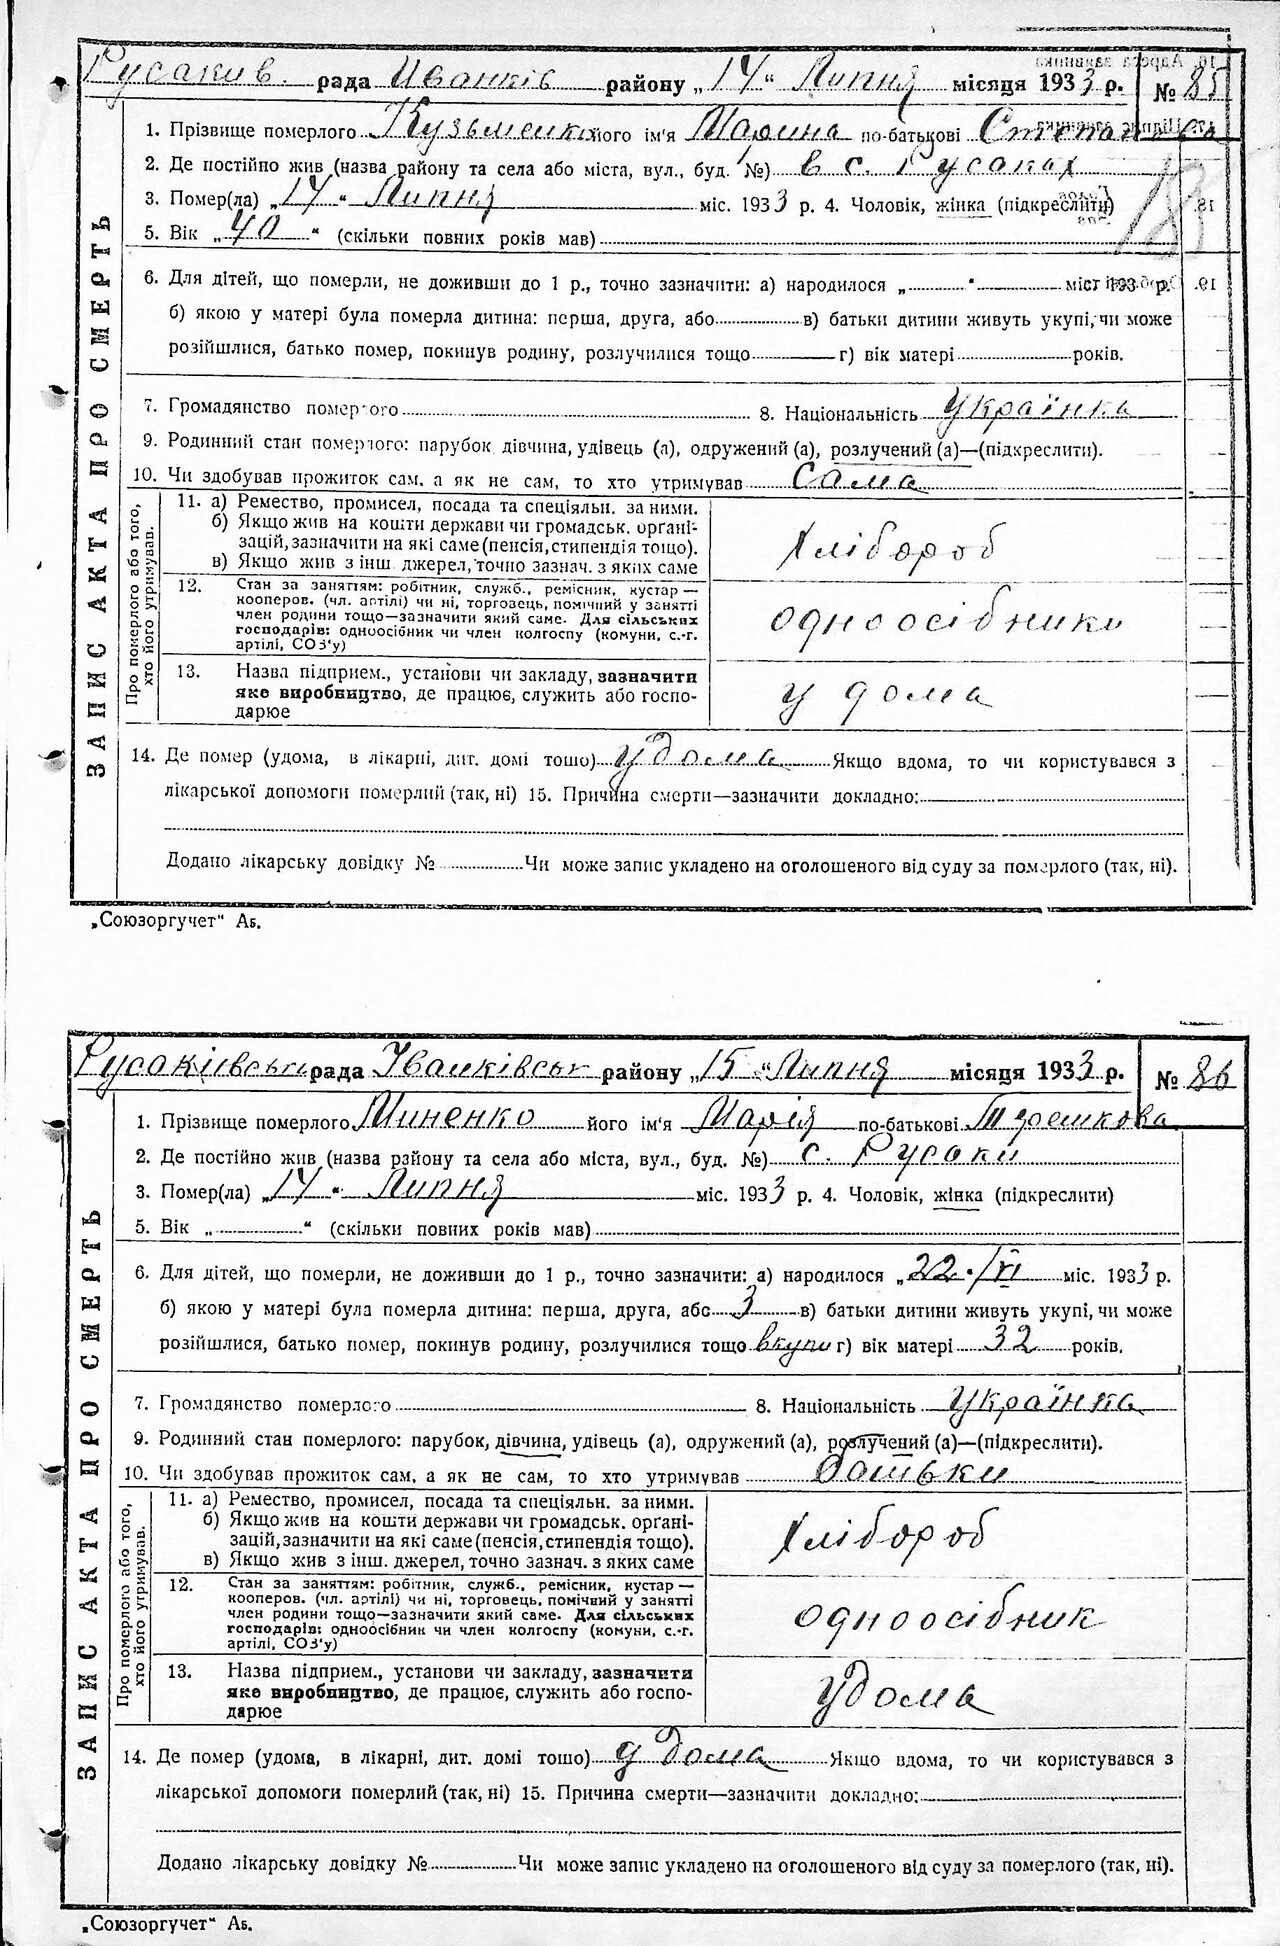 Русаків. рада Иванків району „14“ Липня місяця 1933 р. № 85
1. Прізвище померлого Кузьменко його ім'я Марина по-батькові Степанова
2. Де постійно жив (назва району та села або міста, вул., буд. №) в с. Русаках
3. Помер(ла) „14“ Липня міс. 1933 р. 4. Чоловік, жінка (підкреслити)
5. Вік „40“ (скільки повних років мав)
6. Для дітей, що померли, не доживши до 1 р., точно зазначити: а) народилося „ “ міс 193 р.
б) якою у матері була померла дитина: перша, друга, або в) батьки дитини живуть укупі, чи може
розійшлися, батько помер, покинув родину, розлучилися тощо г) вік матері років.
7. Громадянство померлого 8. Національність Українка
9. Родинний стан померлого: парубок дівчина, удівець (а), одружений (а), розлучений (а)—(підкреслити).
10. Чи здобував прожиток сам, а як не сам, то хто утримував Сама
ЗАПИС АКТА ПРО СМЕРТЬ
Про померлого або того, хто його утримував.
11. а) Ремество, промисел, посада та спеціяльн. за ними.
б) Якщо жив на кошти держави чи громадськ. орґані-
зацій, зазначити на які саме (пенсія, стипендія тощо).
в) Якщо жив з інш. джерел, точно зазнач. з яких саме
Хлібороб
12. Стан за заняттям: робітник, служб., ремісник, кустар —
кооперов. (чл. артілі) чи ні, торговець, помічний у занятті
член родини тощо—зазначити який саме. Для сільських
господарів: одноосібник чи член колгоспу (комуни, с.-г.
артілі, СОЗ'у)
одноосібники
13. Назва підприєм., установи чи закладу, зазначити
яке виробництво, де працює, служить або госпо-
дарює
у дома
14. Де помер (удома, в лікарні, дит. домі тощо) удома Якщо вдома, то чи користувався з
лікарської допомоги померлий (так, ні) 15. Причина смерти—зазначити докладно:
Додано лікарську довідку № Чи може запис укладено на оголошеного від суду за померлого (так, ні).
„Союзоргучет“ Аб.
Русаківськ рада Іванківськ району „15“ Липня місяця 1933 р. № 86
1. Прізвище померлого Миненко його ім'я Марія по-батькові Терешкова
2. Де постійно жив (назва району та села або міста, вул., буд. №) с. Русаки
3. Помер(ла) „14“ Липня міс. 1933 р. 4. Чоловік, жінка (підкреслити)
5. Вік „ “ (скільки повних років мав)
6. Для дітей, що померли, не доживши до 1 р., точно зазначити: а) народилося „22./VI міс. 1933 р.
б) якою у матері була померла дитина: перша, друга, або 3 в) батьки дитини живуть укупі, чи може
розійшлися, батько помер, покинув родину, розлучилися тощо вкупи г) вік матері 32 років.
7. Громадянство померлого 8. Національність Українка
9. Родинний стан померлого: парубок, дівчина, удівець (а), одружений (а), розлучений (а)—(підкреслити).
10. Чи здобував прожиток сам, а як не сам, то хто утримував батьки
ЗАПИС АКТА ПРО СМЕРТЬ
Про померлого або того, хто його утримував.
11. а) Ремество, промисел, посада та спеціяльн. за ними.
б) Якщо жив на кошти держави чи громадськ. орґані-
зацій, зазначити на які саме (пенсія, стипендія тощо).
в) Якщо жив з інш. джерел, точно зазнач. з яких саме
Хлібороб
12. Стан за заняттям: робітник, служб., ремісник, кустар —
кооперов. (чл. артілі) чи ні, торговець, помічний у занятті
член родини тощо—зазначити який саме. Для сільських
господарів: одноосібник чи член колгоспу (комуни, с.-г.
артілі, СОЗ'у)
одноосібник
13. Назва підприєм., установи чи закладу, зазначити
яке виробництво, де працює, служить або госпо-
дарює
удома
14. Де помер (удома, в лікарні, дит. домі тощо) удома Якщо вдома, то чи користувався з
лікарської допомоги померлий (так, ні) 15. Причина смерти—зазначити докладно:
Додано лікарську довідку № Чи може запис укладено на оголошеного від суду за померлого (так, ні).
„Союзоргучет“ Аб.